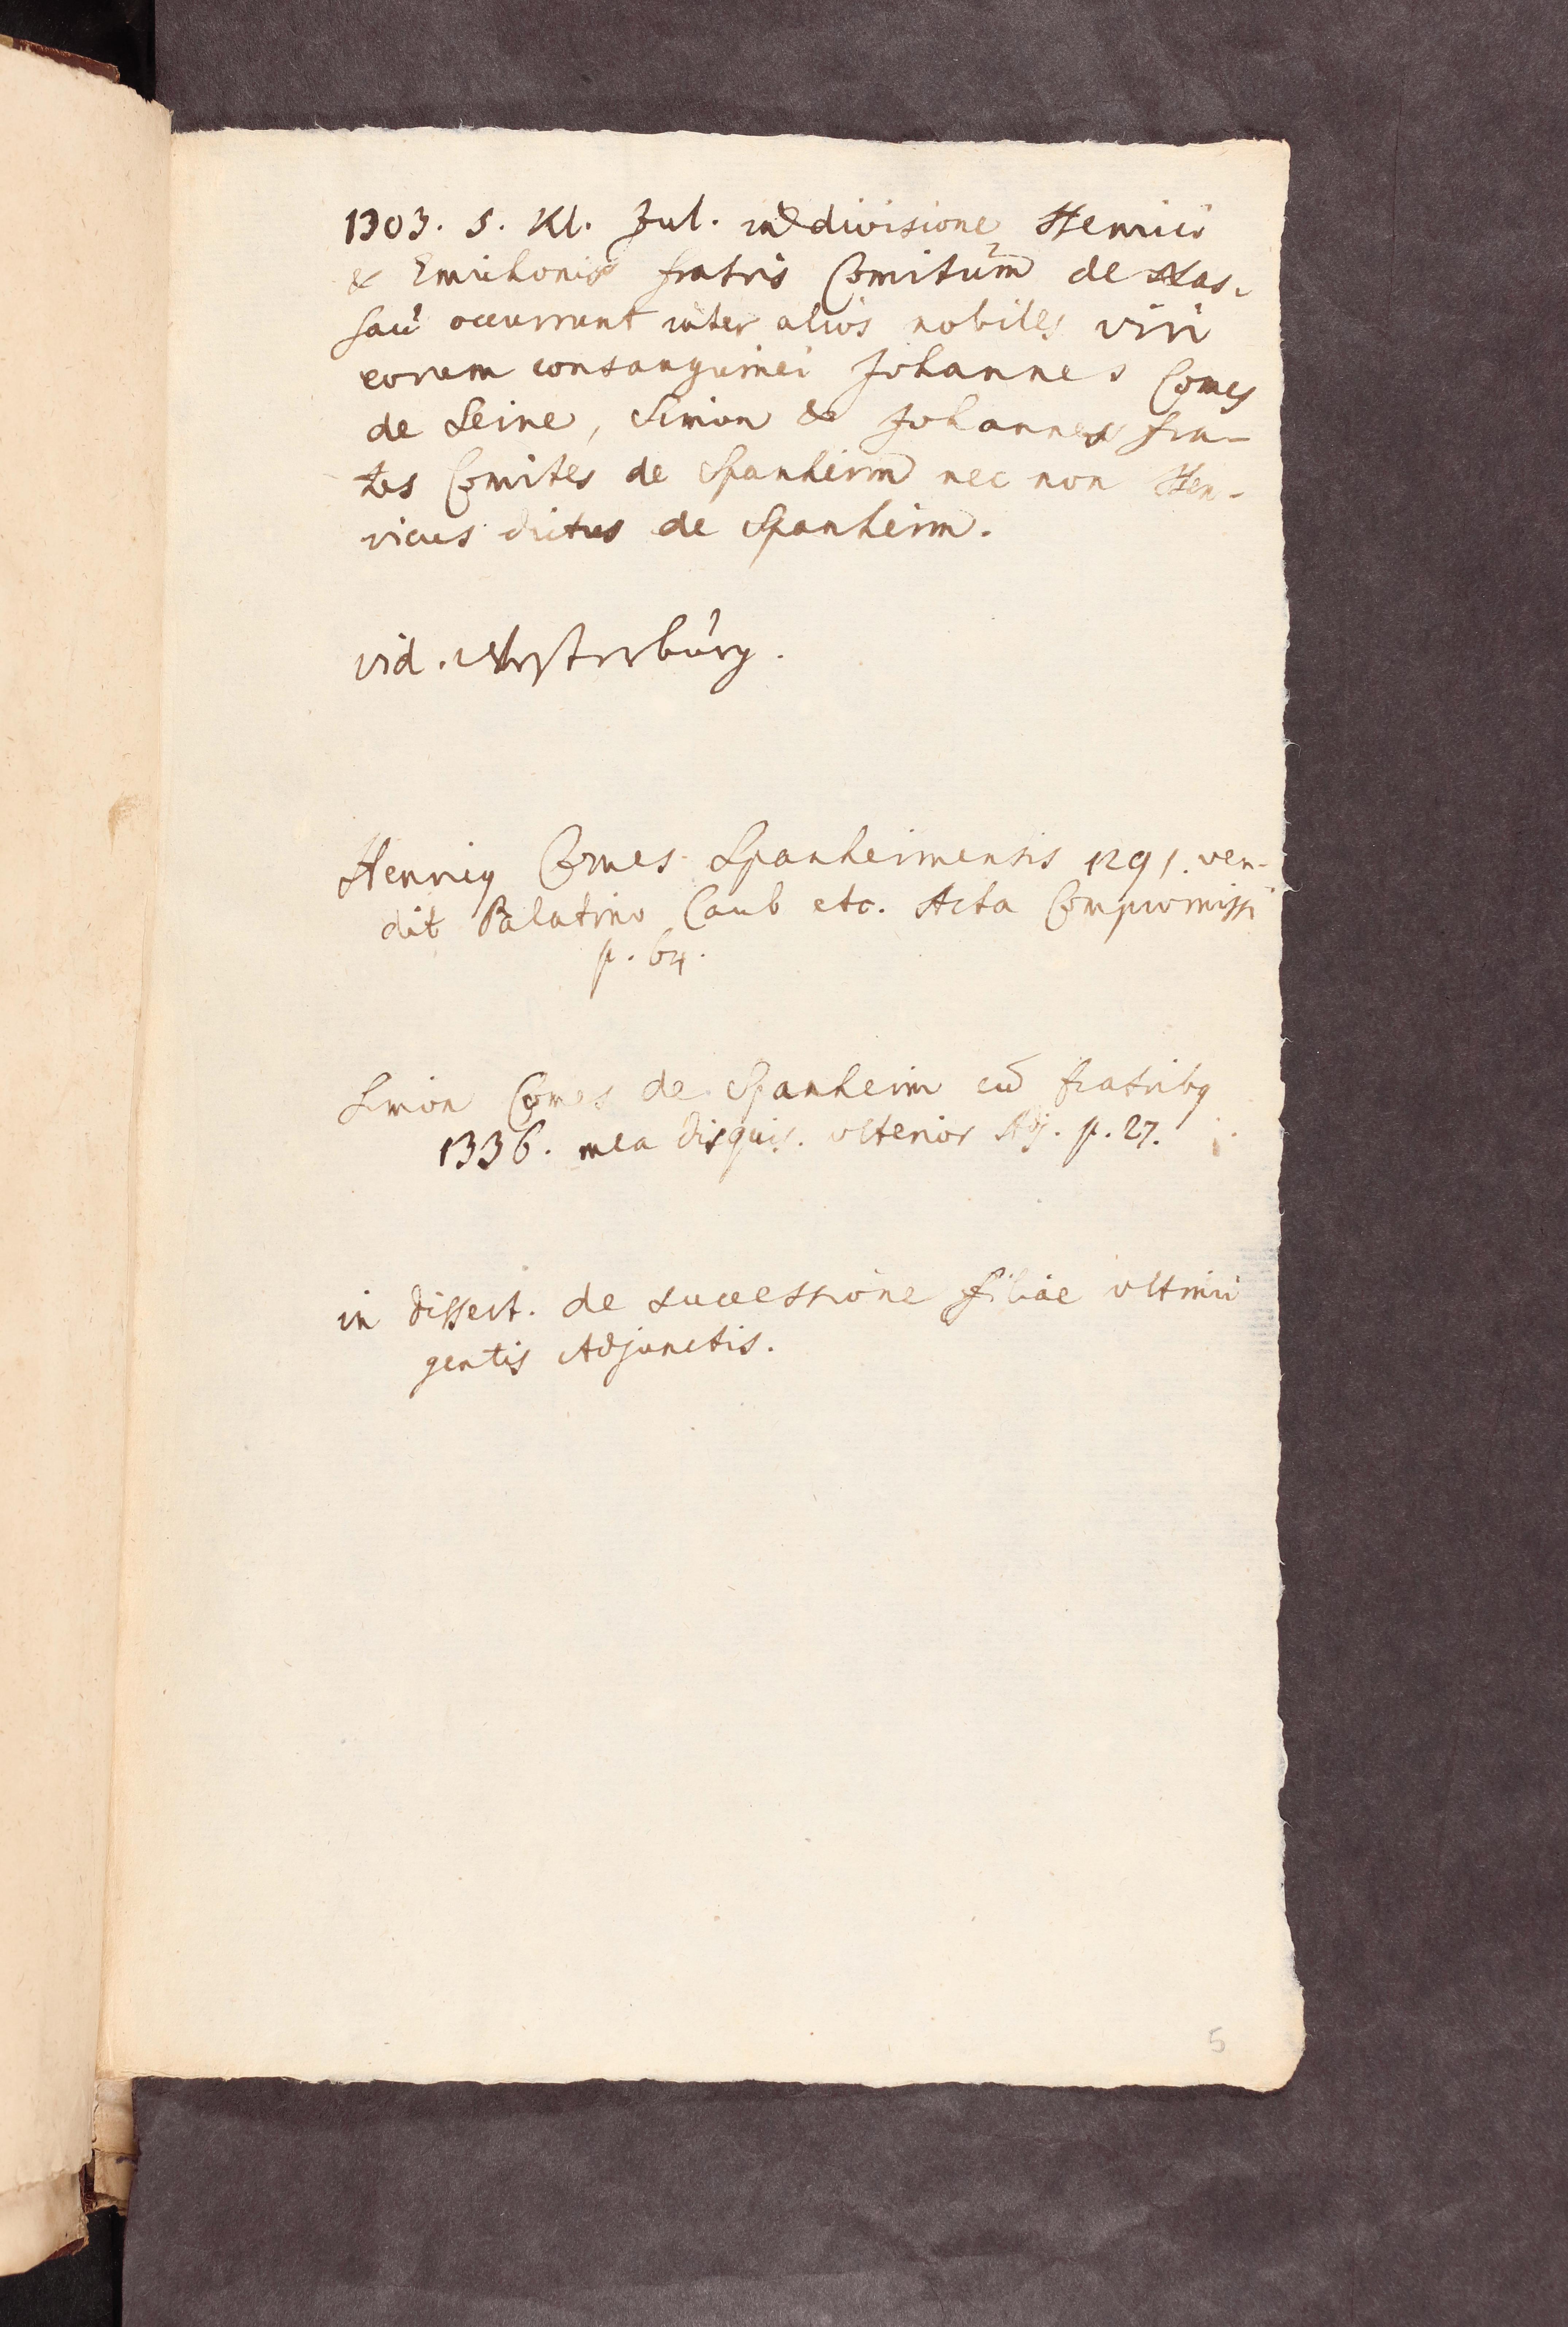 1303. 5. Kl. Jul. in divisione Henrici
& Emichonis fratris Comitum de Nas-
sau occurrunt inter alios nobiles viri
eorum consanguinei Johannes Comes
de Seine, Simon & Johannes fra-
tes Comites de Spanheim nec non Hen-
ricus dictus de Spanheim.
vid. Westerburg.
Henricy Comes Spanheimensis 1291. ven-
dit Palatino Caub etc. Acta Compromissi
p. 64.
Simon Comes de Spanheim cū fratriby
1336. mea disquis. ulterior Adj. p. 27.
in dissert. de successione filiae ultimi
gentis Adjunctis.
5